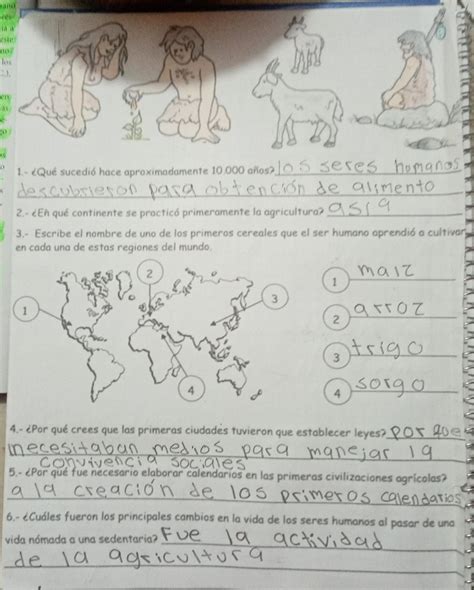 1.- ¿Qué sucedió hace aproximadamente 10.000 años? los seres homanos
descubrieron para obtención de alimento
2.- ¿En qué continente se practicó primeramente la agricultura? asia
3.- Escribe el nombre de uno de los primeros cereales que el ser humano aprendió a cultivar
en cada una de estas regiones del mundo.
1 2 3 4
1 maiz
2 arroz
3 trigo
4 sorgo
4.- ¿Por qué crees que las primeras ciudades tuvieron que establecer leyes? por que
necesitaban medios para manejar la
convivencia sociales
5.- ¿Por qué fue necesario elaborar calendarios en las primeras civilizaciones agrícolas?
a la creación de los primeros calendarios
6.- ¿Cuáles fueron los principales cambios en la vida de los seres humanos al pasar de una
vida nómada a una sedentaria? Fue la actividad
de la agricultura